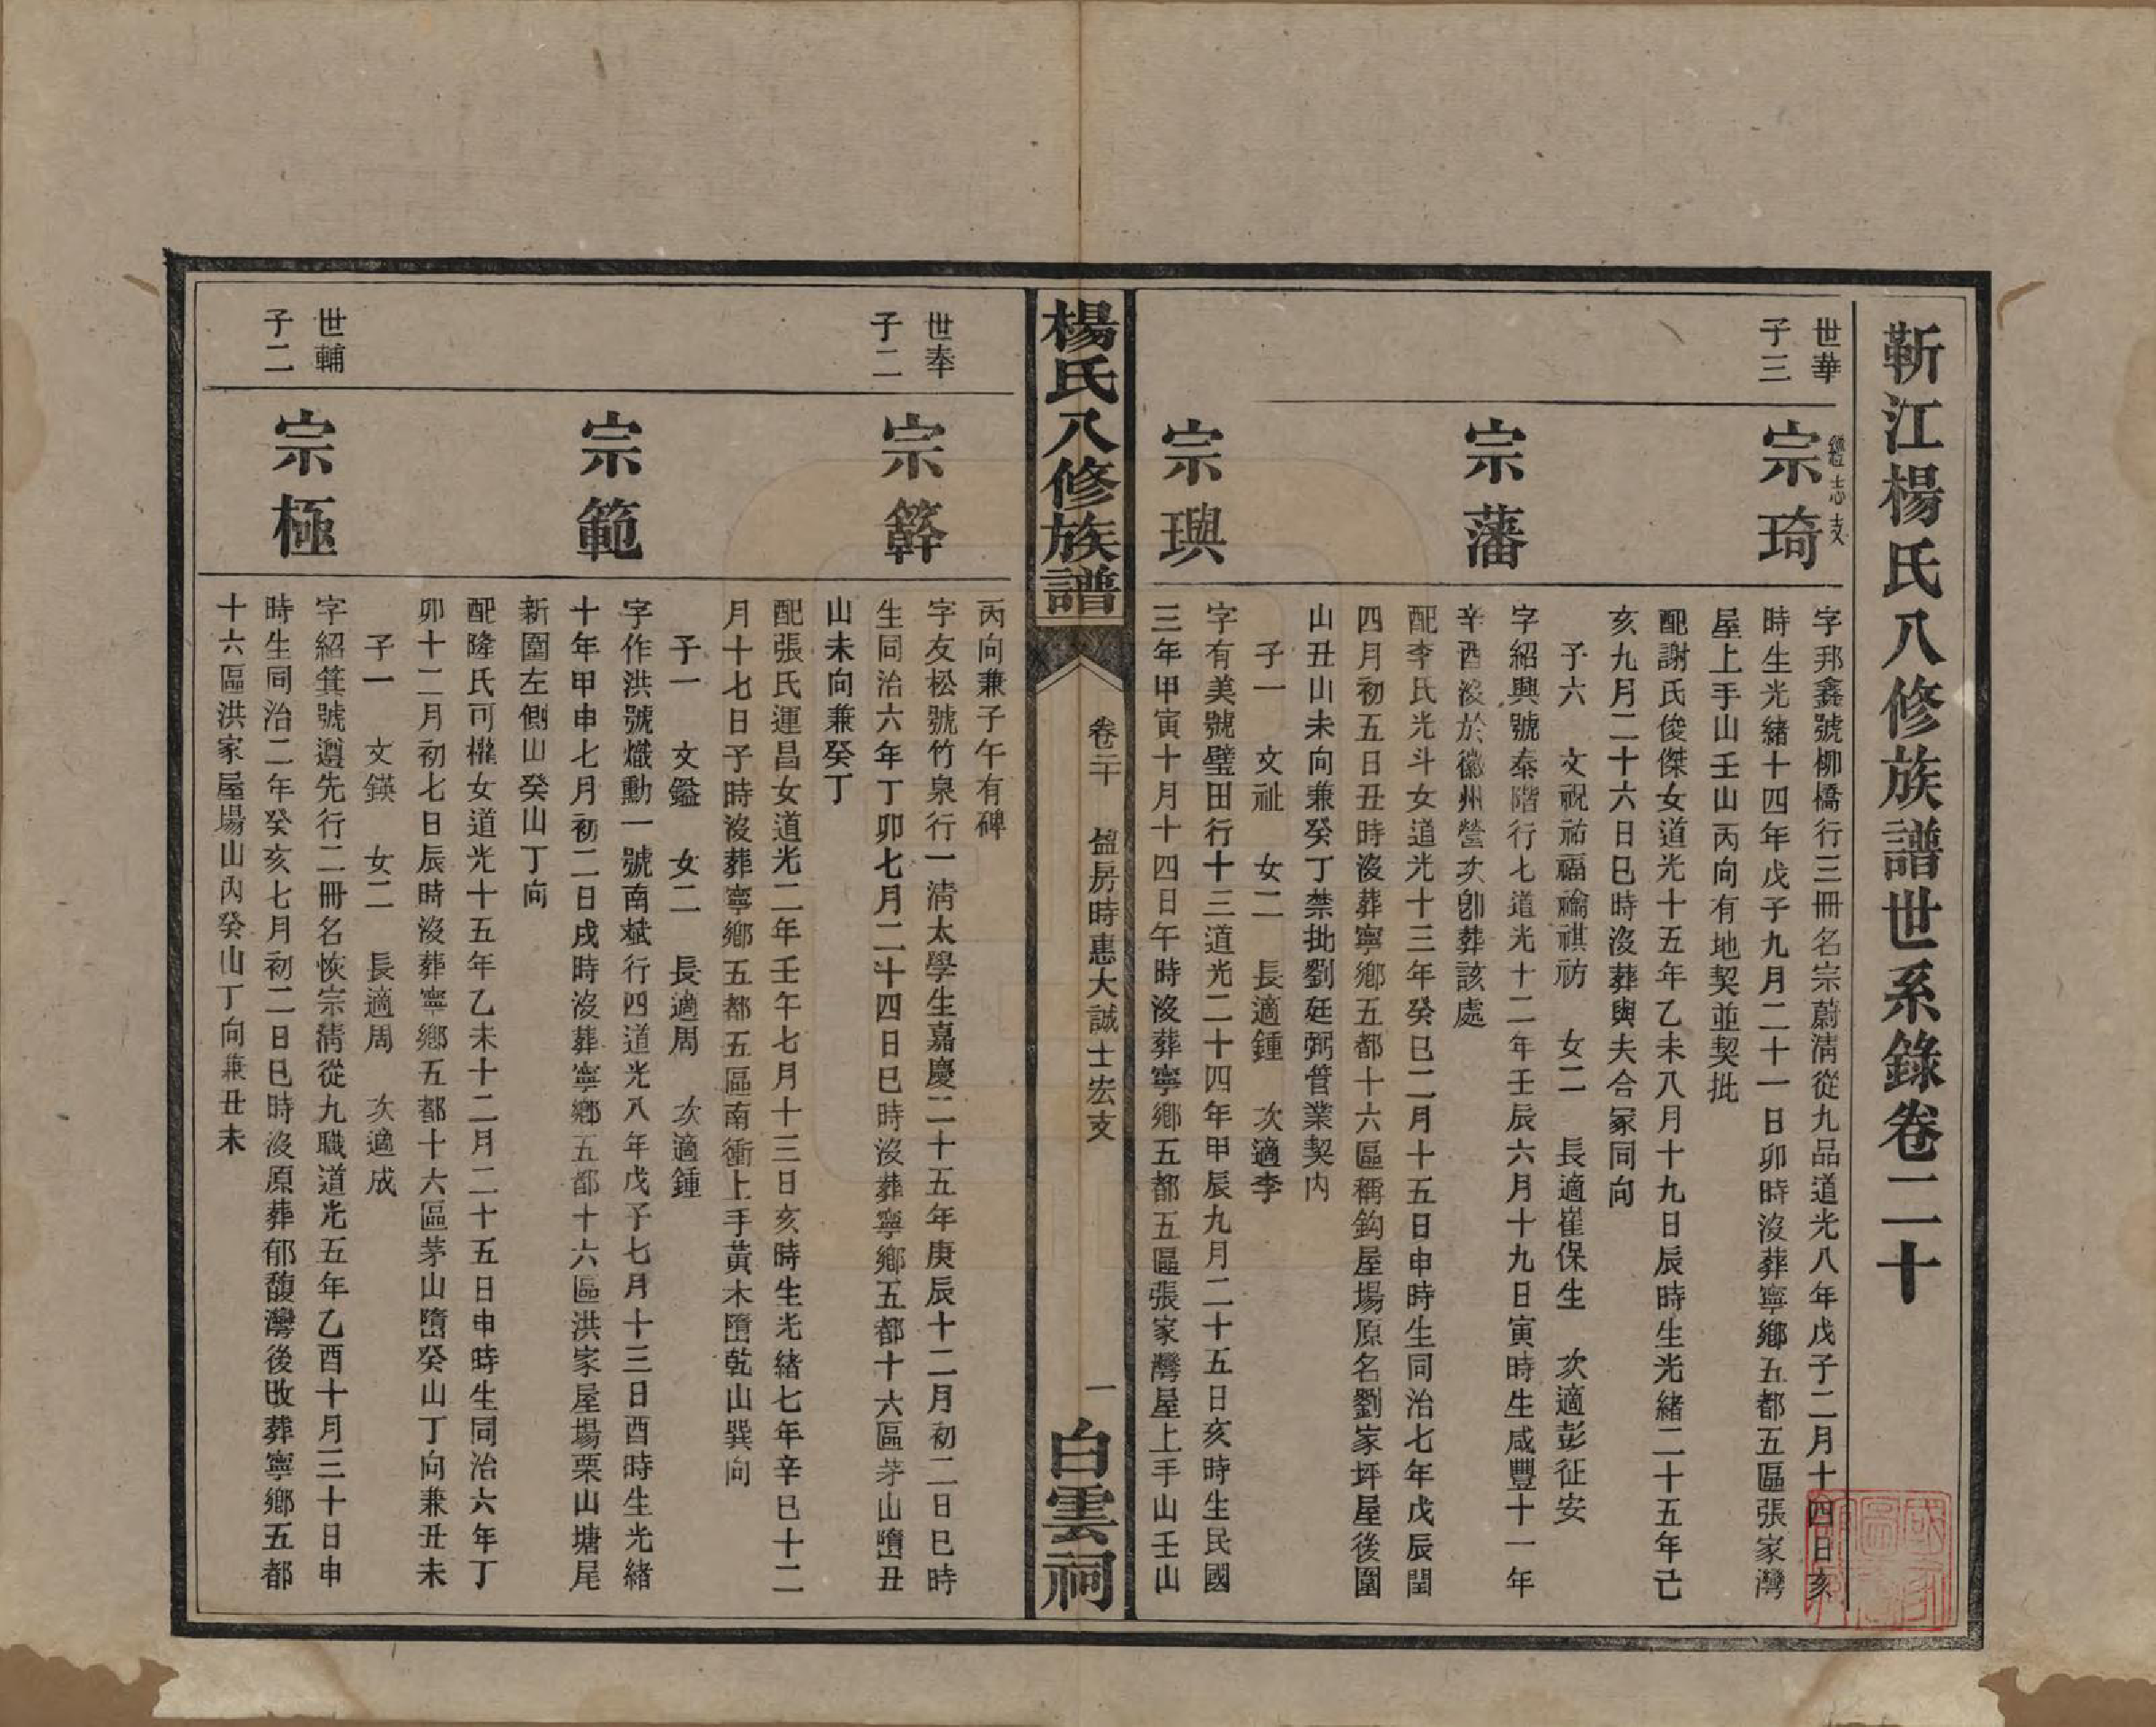 靳江楊氏八修族譜世系錄卷二十
世華
子三
宗琦
字邦鑫號柳橋行三冊名宗蔚淸從九品道光八年戊子二月十四日亥
時生光緒十四年戊子九月二十一日卯時沒葬寧鄉五都五區張家灣
屋上手山壬山丙向有地契並契批
配謝氏俊傑女道光十五年乙未八月十九日辰時生光緒二十五年己
亥九月二十六日巳時沒葬與夫合冢同向
子六 文祝祐福禴祺祊 女二 長適崔保生 次適彭征安
宗藩
字紹興號泰階行七道光十二年壬辰六月十九日寅時生咸豐十一年
辛酉沒於徽州營次卽葬該處
配李氏光斗女道光十三年癸巳二月十五日申時生同治七年戊辰閏
四月初五日丑時沒葬寧鄉五都十六區稱鈎屋場原名劉家坪屋後圍
山丑山未向兼癸丁禁批劉廷弼管業契內
子一 文祉 女二 長適鍾 次適李
宗璵
字有美號璧田行十三道光二十四年甲辰九月二十五日亥時生民國
三年甲寅十月十四日午時沒葬寧鄉五都五區張家灣屋上手山壬山
楊氏八修族譜
卷二十 盈房時惠大誠士宏支
一
白雲祠
丙向兼子午有碑
世奉
子二
宗簳
字友松號竹泉行一淸太學生嘉慶二十五年庚辰十二月初二日巳時
生同治六年丁卯七月二十四日巳時沒葬寧鄉五都十六區茅山墮丑
山未向兼癸丁
配張氏運昌女道光二年壬午七月十三日亥時生光緒七年辛巳十二
月十七日子時沒葬寧鄉五都五區南衝上手黃木墮乾山巽向
子一 文鑑 女二 長適周 次適鍾
宗範
字作洪號熾勳一號南斌行四道光八年戊子七月十三日酉時生光緒
十年甲申七月初二日戌時沒葬寧鄉五都十六區洪家屋場栗山塘尾
新圍左側山癸山丁向
配隆氏可櫂女道光十五年乙未十二月二十五日申時生同治六年丁
卯十二月初七日辰時沒葬寧鄉五都十六區茅山墮癸山丁向兼丑未
子一 文鍈 女二 長適周 次適成
世輔
子二
宗極
字紹箕號遵先行二冊名恢宗淸從九職道光五年乙酉十月三十日申
時生同治二年癸亥七月初二日巳時沒原葬郁馥灣後改葬寧鄉五都
十六區洪家屋場山內癸山丁向兼丑未